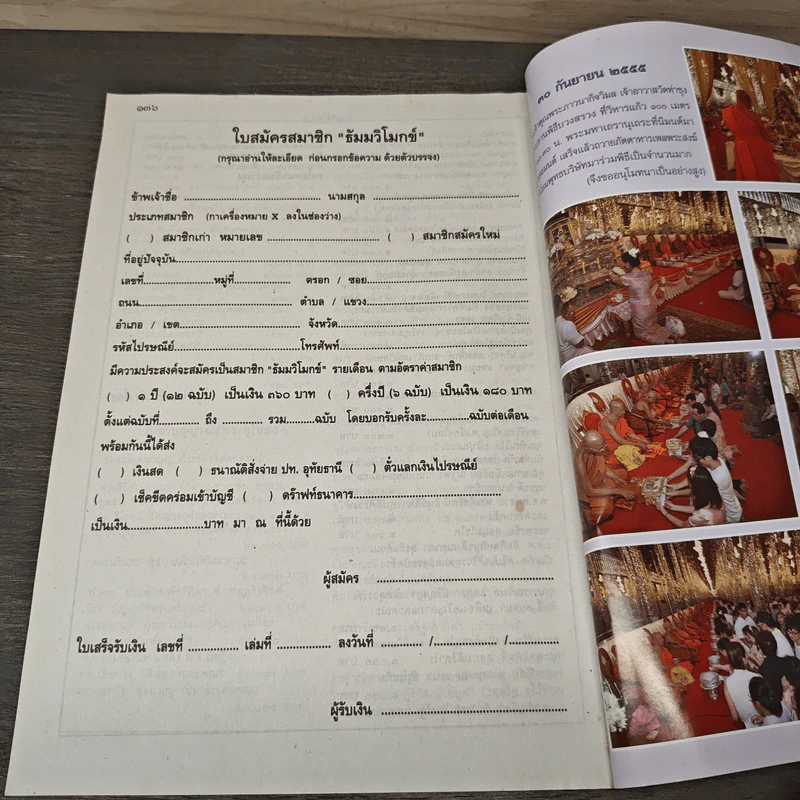 ๑๓๖
ใบสมัครสมาชิก "ธัมมวิโมกข์"
(กรุณาอ่านให้ละเอียด ก่อนกรอกข้อความ ด้วยตัวบรรจง)
ข้าพเจ้าชื่อ ........................................ นามสกุล ............................................
ประเภทสมาชิก (กาเครื่องหมาย X ลงในช่องว่าง)
( ) สมาชิกเก่า หมายเลข ................................ ( ) สมาชิกสมัครใหม่
ที่อยู่ปัจจุบัน................................................................................
เลขที่..........................หมู่ที่................ ตรอก / ซอย................................................
ถนน............................................ ตำบล / แขวง................................................
อำเภอ / เขต.................................... จังหวัด........................................................
รหัสไปรษณีย์....................................โทรศัพท์........................................................
มีความประสงค์จะสมัครเป็นสมาชิก "ธัมมวิโมกข์" รายเดือน ตามอัตราค่าสมาชิก
( ) ๑ ปี (๑๒ ฉบับ) เป็นเงิน ๓๖๐ บาท ( ) ครึ่งปี (๖ ฉบับ) เป็นเงิน ๑๘๐ บาท
ตั้งแต่ฉบับที่............. ถึง ............. รวม.........ฉบับ โดยบอกรับครั้งละ..............ฉบับต่อเดือน
พร้อมกันนี้ได้ส่ง
( ) เงินสด ( ) ธนาณัติสั่งจ่าย ปท. อุทัยธานี ( ) ตั๋วแลกเงินไปรษณีย์
( ) เช็คขีดคร่อมเข้าบัญชี ( ) ดร๊าฟท์ธนาคาร............................................
เป็นเงิน........................บาท มา ณ ที่นี้ด้วย
ผู้สมัคร ....................................................
ใบเสร็จรับเงิน เลขที่ ................ เล่มที่ ................ ลงวันที่ ............. /.................... /................
ผู้รับเงิน ......................................................
๓๐ กันยายน ๒๕๕๕
คุณพระภาวนากิจวิมล เจ้าอาวาสวัดท่าซุง
พิธีบวงสรวง ที่วิหารแก้ว ๑๐๐ เมตร
น. พระมหาเถรานุเถระที่นิมนต์มา
เสร็จแล้วถวายภัตตาหารเพลพระสงฆ์
พุทธบริษัทมาร่วมพิธีเป็นจำนวนมาก
(จึงขออนุโมทนาเป็นอย่างสูง)